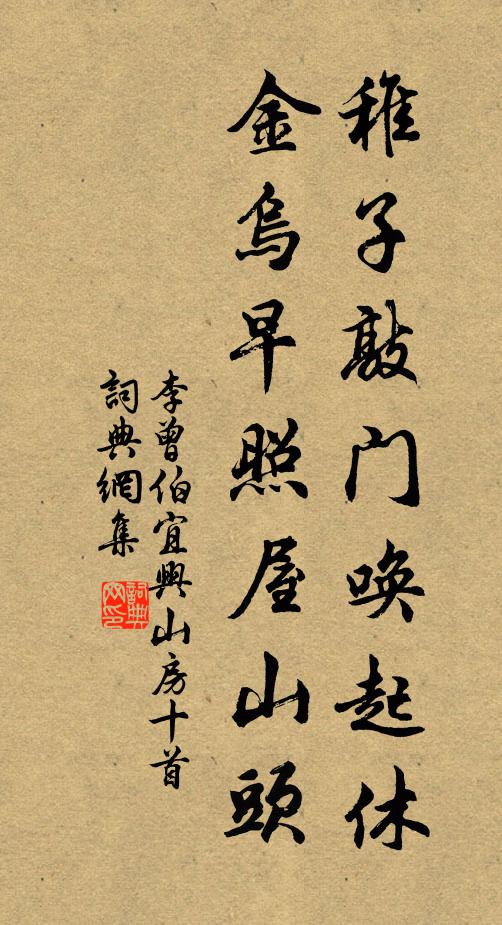 稚子敲门唤起休
金烏早照屋山頭
李曾伯宜興山房十首
詞典網集
詞典网印